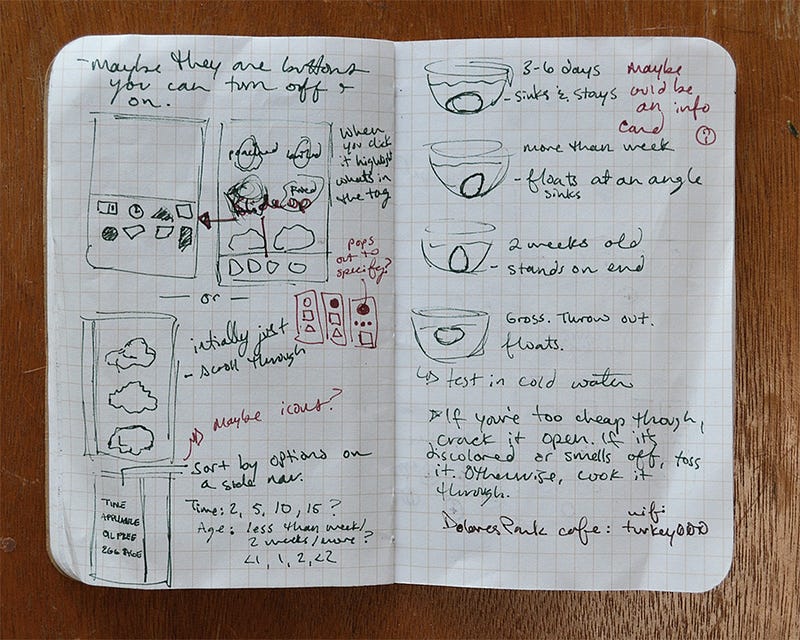 -Maybe they are buttons
you can turn off &
on.
poached
Fried
Slide up
When
you click
it highlights
whats in
the tag
pops
out to
specify?
- or -
intially just
- scroll through
Maybe icons?
- sort by options on
a side nav.
TIME
APPLIANCE
OIL FREE
EGG BASE
Time: 2, 5, 10, 15 ?
Age: less than week/
2 weeks/more?
<1, 1, 2, <2
3-6 days
- sinks & stays
Maybe
could be
an info
card
more than week
- floats at an angle
sinks
2 weeks old
- stands on end
Gross. Throw out.
floats.
↳ test in cold water
If you're too cheap though,
crack it open. If it's
discolored or smells off, toss
it. Otherwise, cook it
through.
Dolores Park cafe: wifi:
turkey000